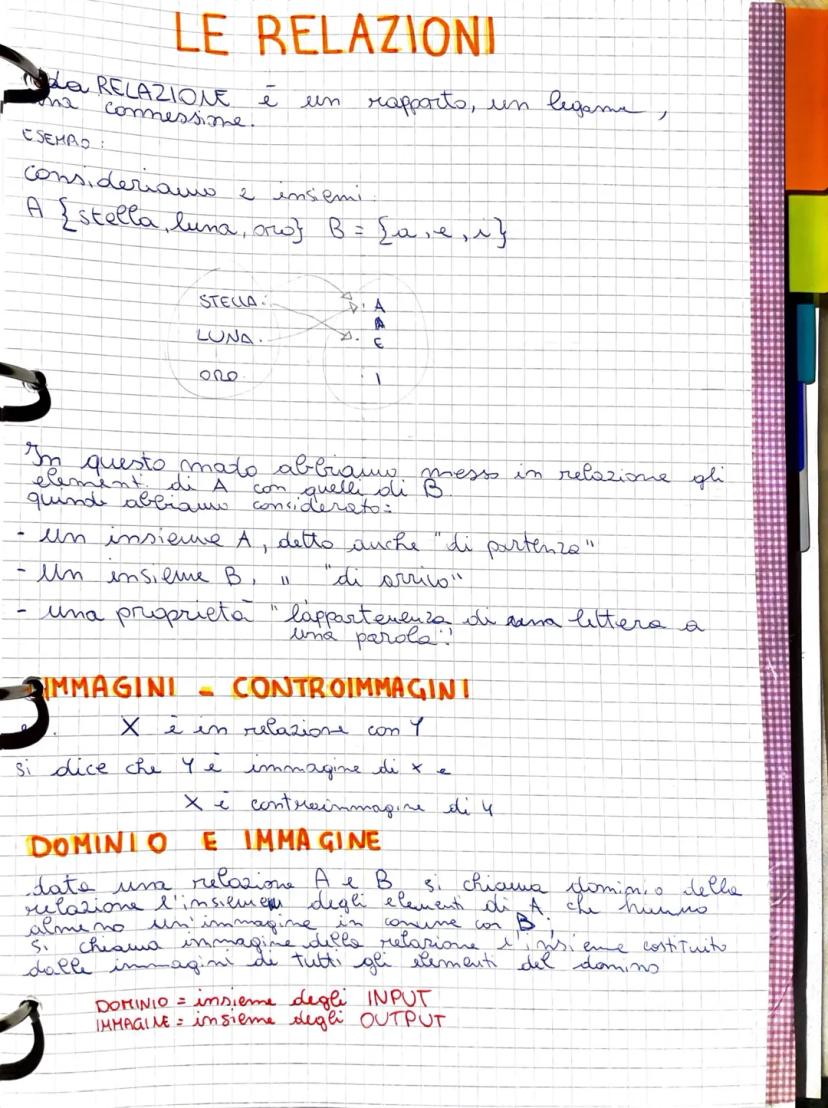 LE RELAZIONI
La RELAZIONE è un rapporto, un legame,
una connessione.
ESEMPIO:
Consideriamo 2 insiemi:
A {stella, luna, oro} B = {a, e, i}
STELLA. . A
A
LUNA. . E
ORO . I
In questo modo abbiamo messo in relazione gli
elementi di A con quelli di B
quindi abbiamo considerato:
- un insieme A, detto anche "di partenza"
- Un insieme B, " "di arrivo"
- una proprietà "l'appartenenza di una lettera a
una parola".
IMMAGINI - CONTROIMMAGINI
X è in relazione con Y
si dice che Y è immagine di x e
X è controimmagine di y
DOMINIO E IMMAGINE
data una relazione A e B si chiama dominio della
relazione l'insieme degli elementi di A che hanno
almeno un'immagine in comune con B;
Si chiama immagine della relazione l'insieme costituito
dalle immagini di tutti gli elementi del domino
DOMINIO = insieme degli INPUT
IMMAGINE = insieme degli OUTPUT